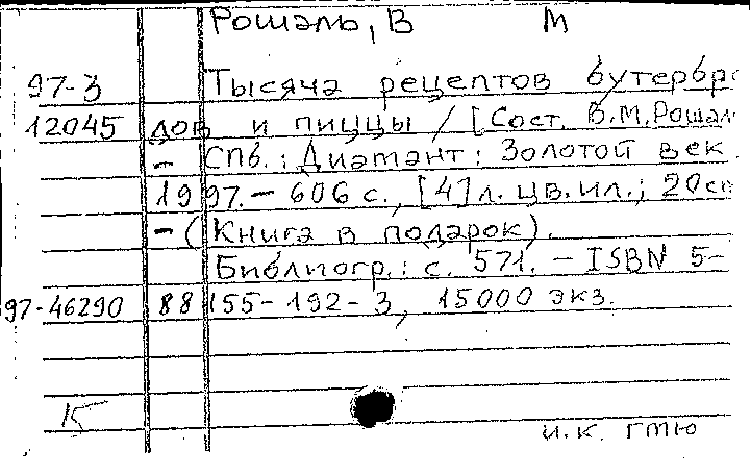 Рошаль, В М
97-3 Тысяча рецептов бутербро
12045 дов и пиццы / [Сост. В.М.Рошал
- СПб.: Диамант: Золотой век
1997.- 606 с., [4]л. цв.ил.; 20см
- (Книга в подарок).
Библиогр.: с. 571. - ISBN 5-
97-46290 88155-192-3, 15000 экз.
15
и.к. гтю